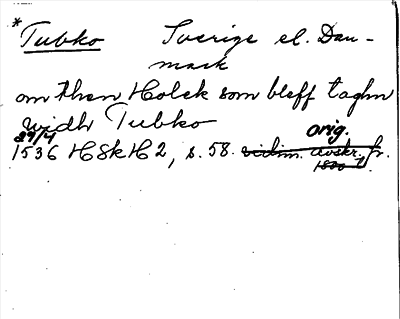 * Tubko Sverige el. Dan-
mark
om then Holck som bleff taghn
widh Tubko
29/4 orig.
1536 HSkH 2, s. 58. vidim. avskr. fr.
1500